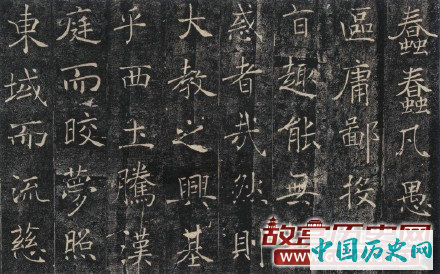 蠢蠢凡愚
區庸鄙投
旨趣能無
惑者哉然則
大教之興基
乎西土騰漢
庭而晈夢照
東域而流慈
中国历史网